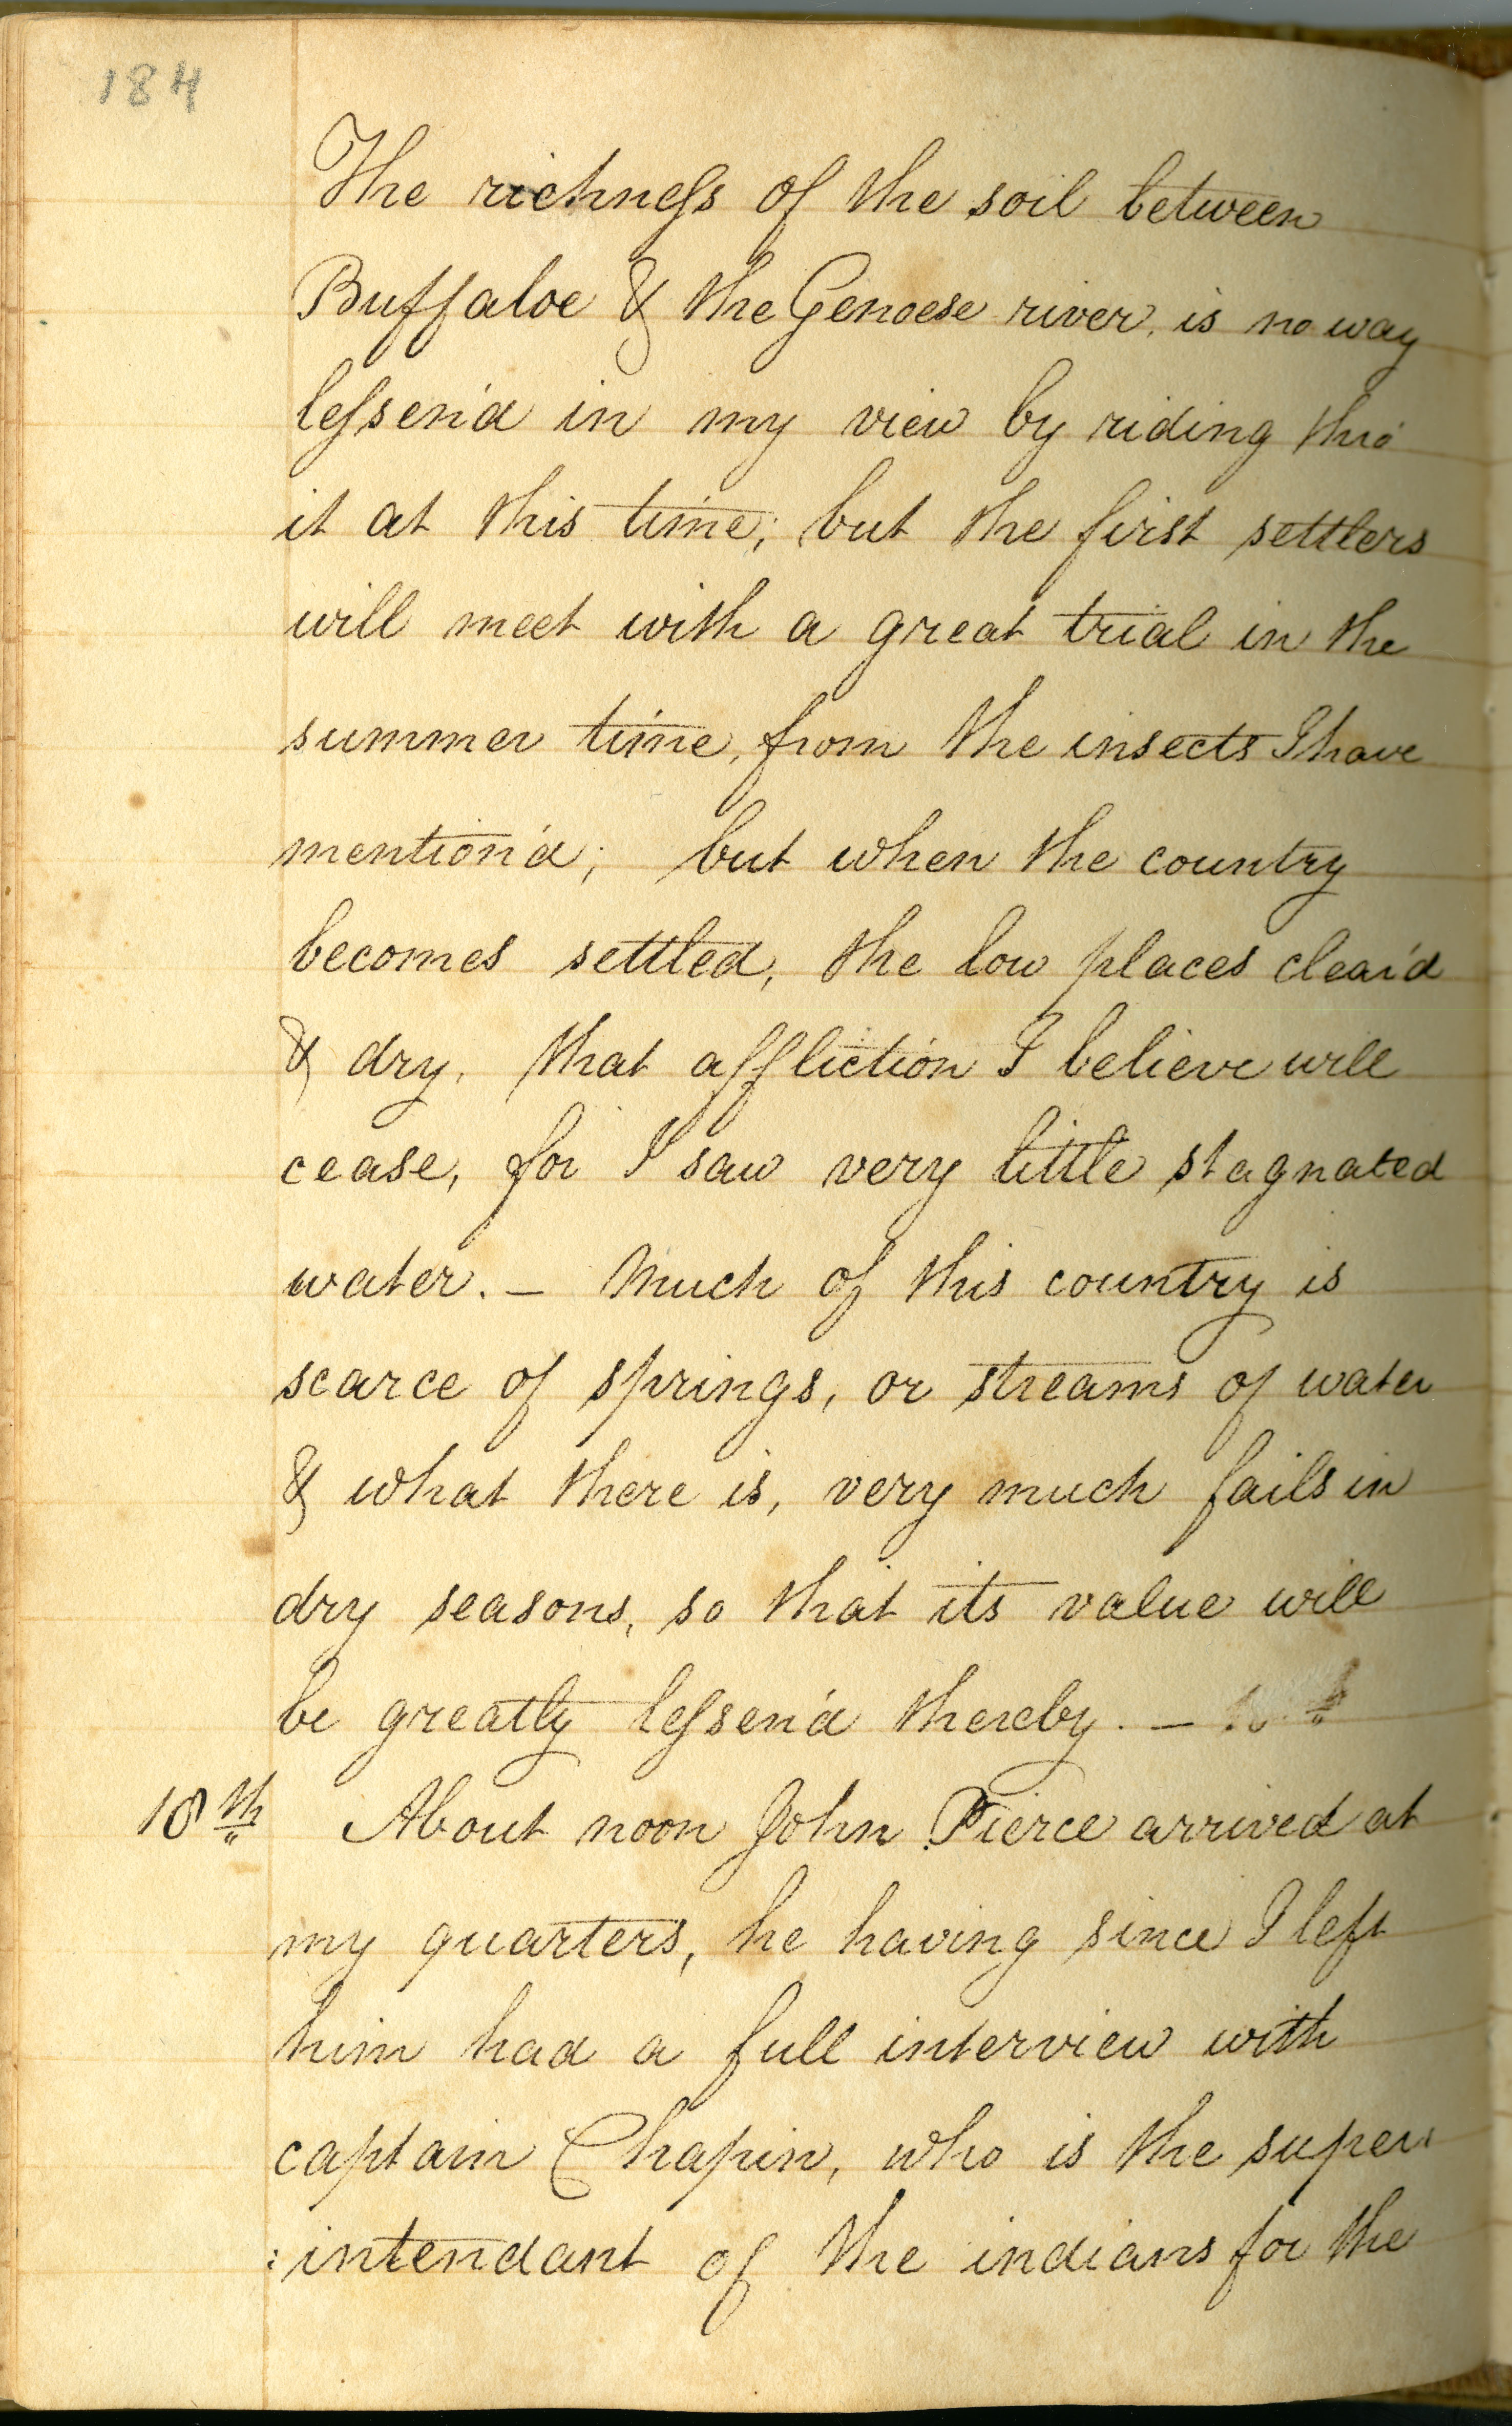 184
The richneſs of the soil between
Buffaloe & the Genoese river, is no way
leſsen'd in my view by riding thro'
it at this time; but the first settlers
will meet with a great trial in the
summer time, from the insects I have
mention'd; but when the country
becomes settled, the low places clear'd
& dry, that affliction I believe will
cease, for I saw very little stagnated
water. – Much of this country is
scarce of springs, or streams of water
& what there is, very much fails in
dry seasons, so that its value will
be greatly leſsen'd thereby. –
18th About noon John Pierce arrived at
my quarters, he having since I left
him had a full interview with
captain Chapin, who is the super:
:intendant of the indians for the